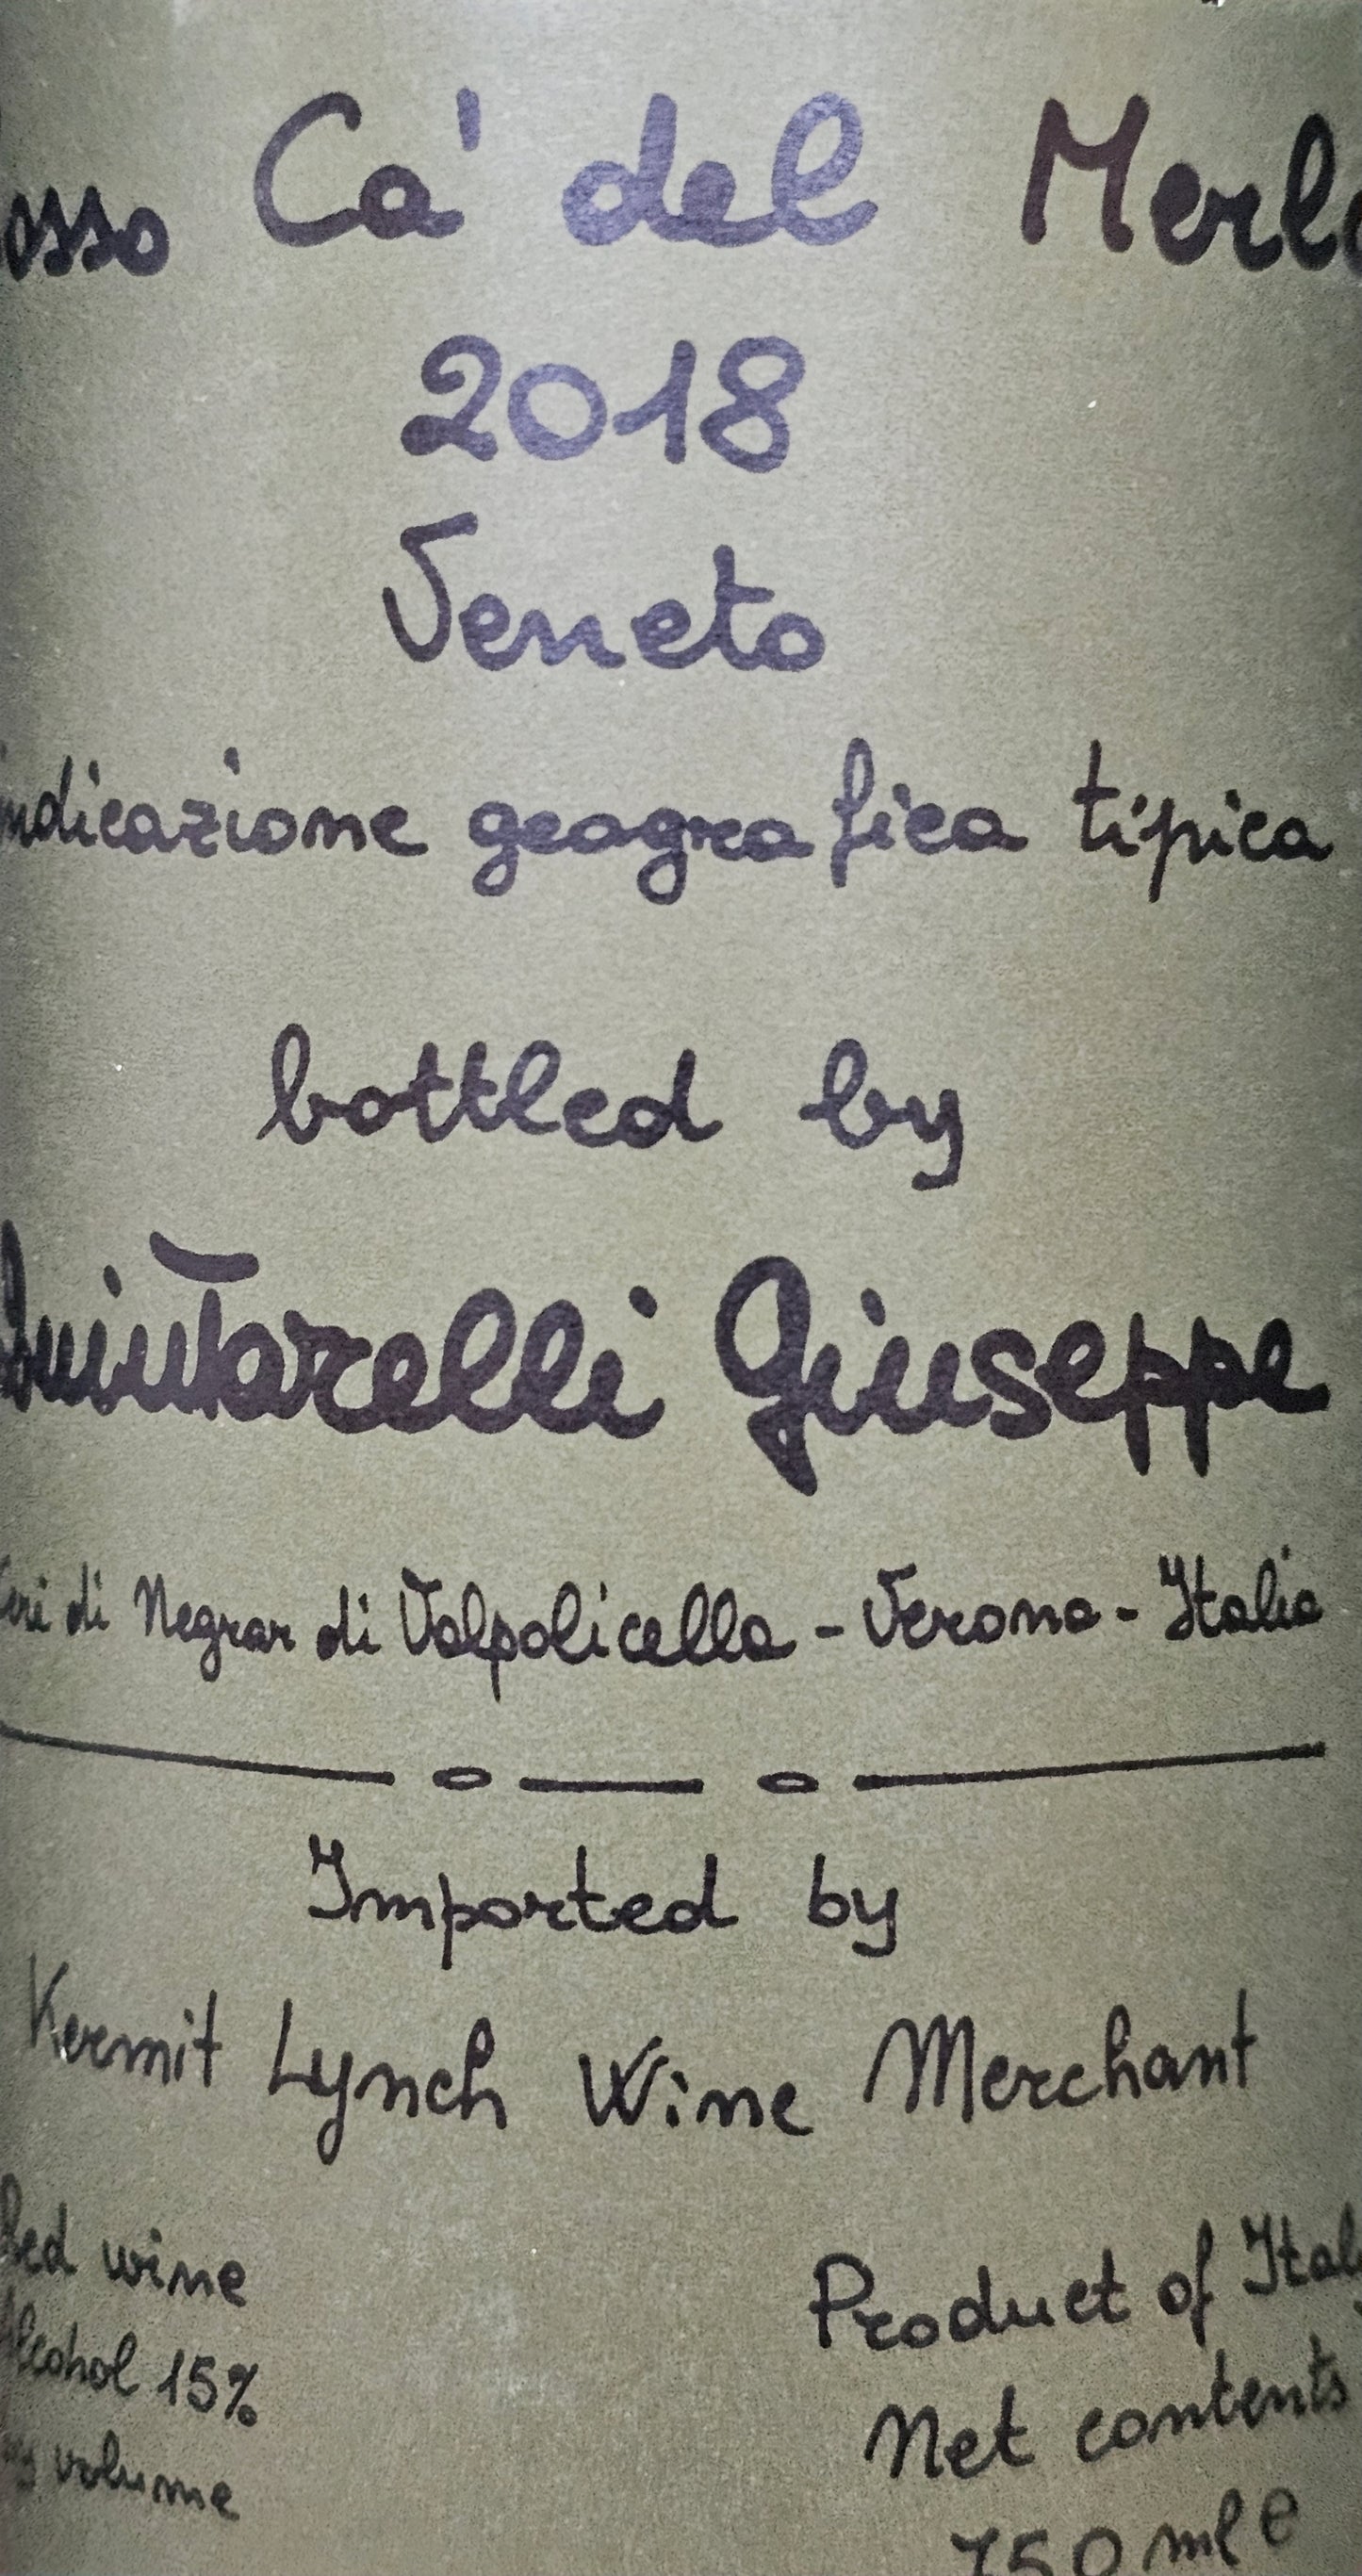 osso Ca' del Merlo
2018
Veneto
indicazione geografica tipica
bottled by
Quintarelli Giuseppe
di Negrar di Valpolicella - Verona - Italia
Imported by
Kermit Lynch Wine Merchant
Red wine
Alcohol 15%
by volume
Product of Italy
Net contents
750 ml e